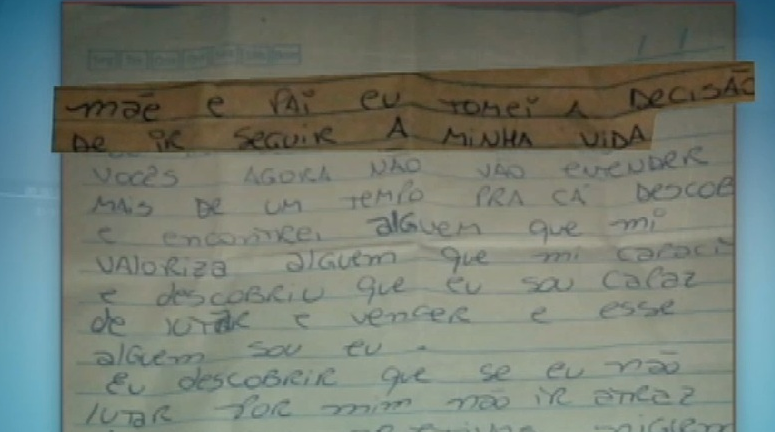 mãe e PAi eu TOMEi A DECISÃO
DE iR SEGUIR A MiNHA ViDA
VOCÊS AGORA NÃO VÃO ENTENDER
MAiS DE UM TEMPO PRA CÁ DESCOB
e encontrei alguem que mi
VALORiza alguem que mi capaci
e descobriu que eu sou capaz
de lutar e vencer e esse
alguem sou eu.
Eu descobrir que se eu não
lutar por mim não ir atraz